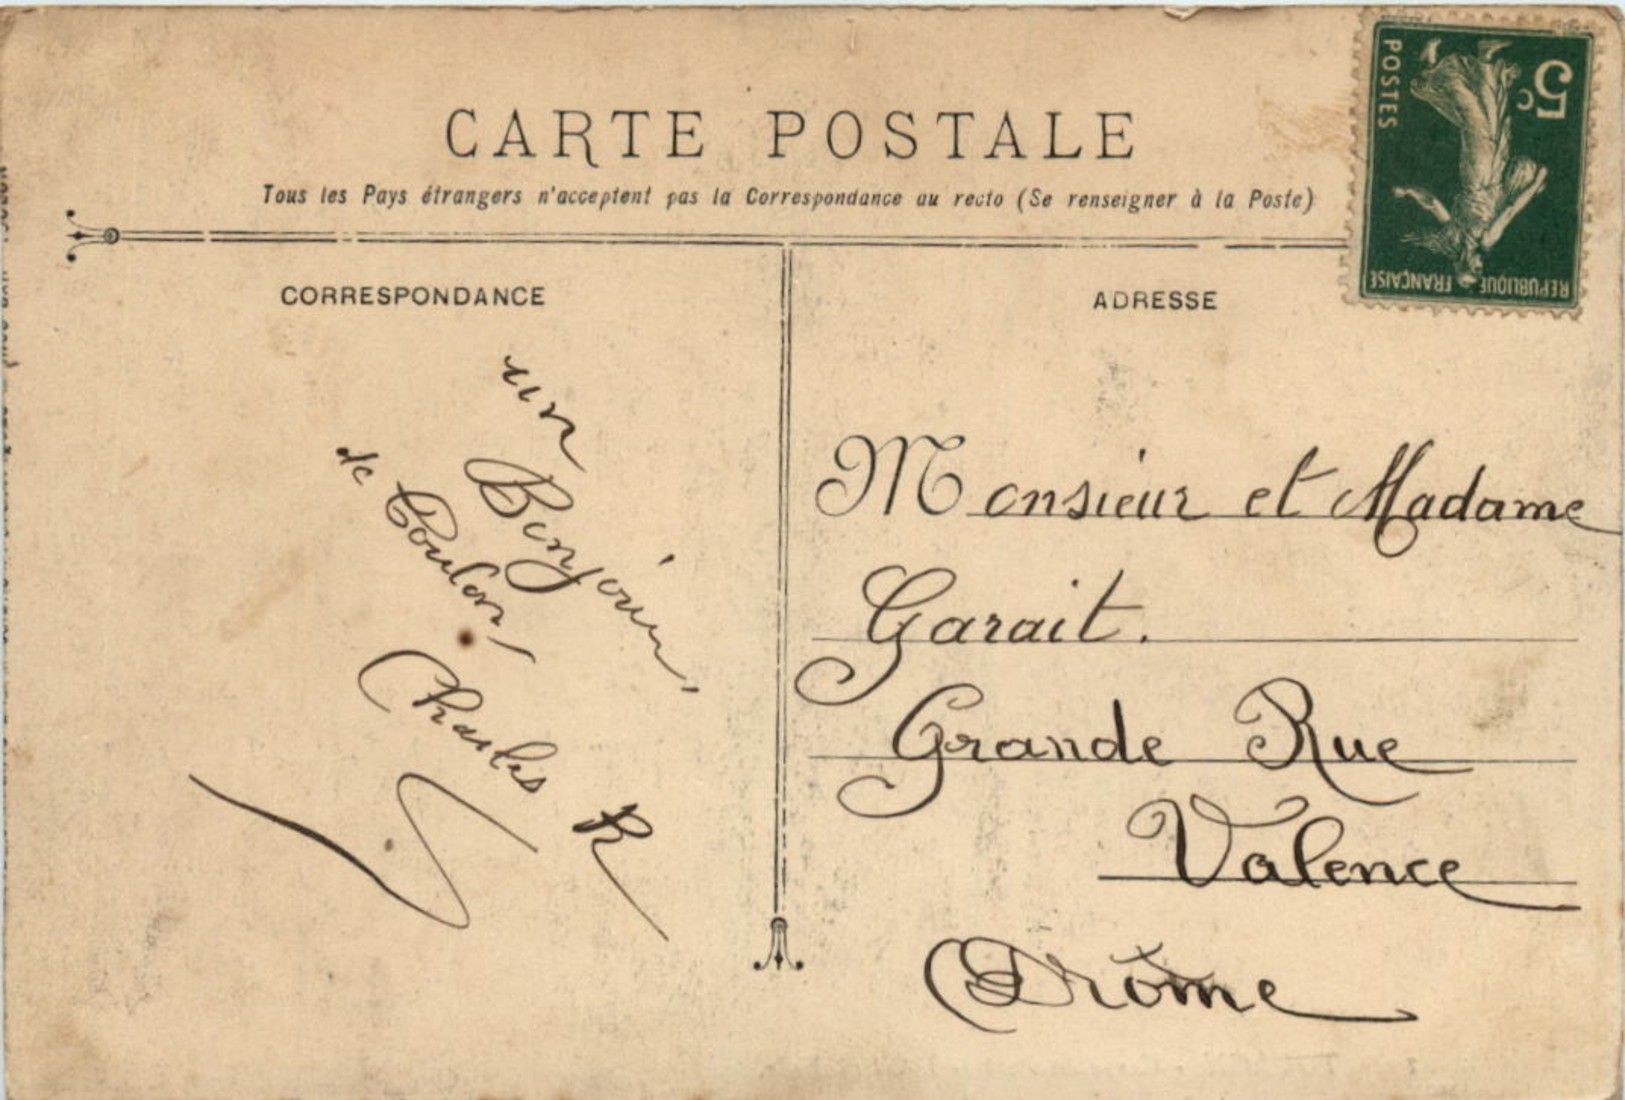 CARTE POSTALE
Tous les Pays étrangers n'acceptent pas la Correspondance au recto (Se renseigner à la Poste)
CORRESPONDANCE
un
Bonjour
de Toulon
Charles R
ADRESSE
Monsieur et Madame
Garait.
Grande Rue
Valence
Drôme
5c
POSTES
REPUBLIQUE FRANÇAISE